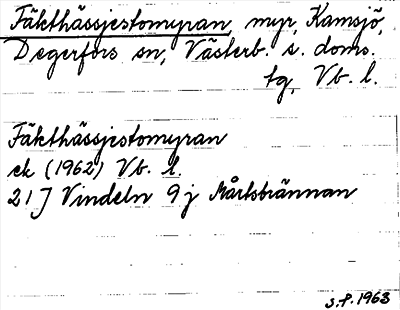 Fäkthässjestomyran, myr, Kamsjö,
Degerfors sn, Västerb. s. doms.
tg, Vb. l.
Fäkthässjestomyran
ek (1962) Vb. l.
21 J Vindeln 9 j Mårtsbrännan
S.P. 1963